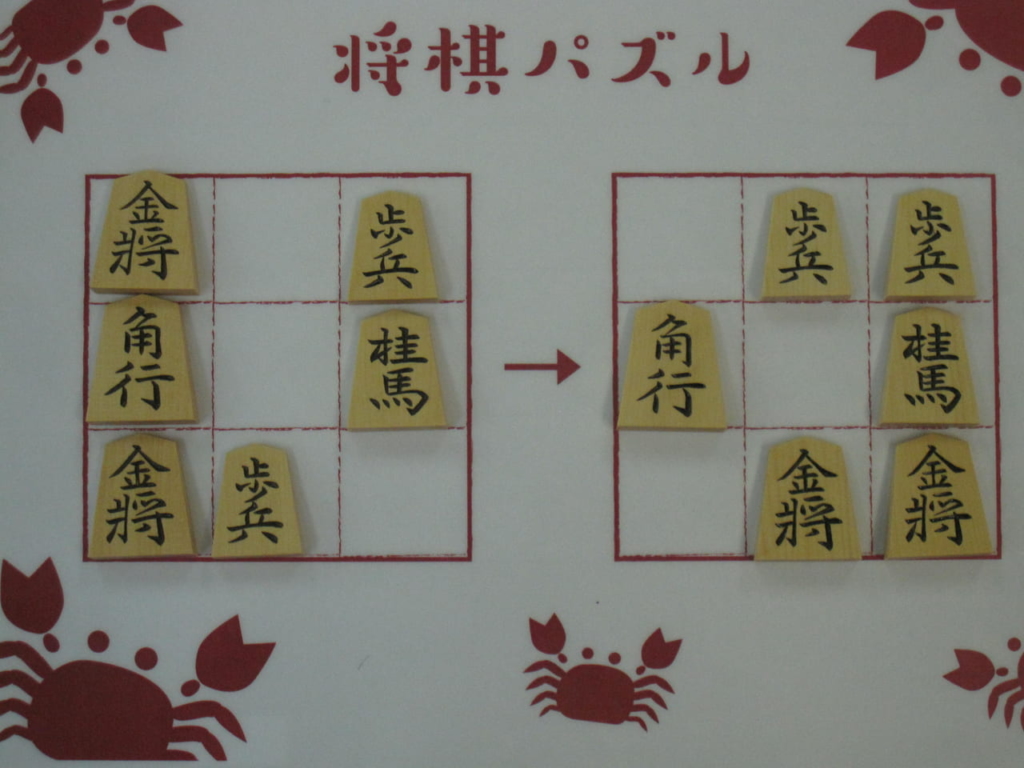 将棋パズル
金将 歩兵 歩兵 歩兵
角行 桂馬 角行 桂馬
金将 歩兵 金将 金将